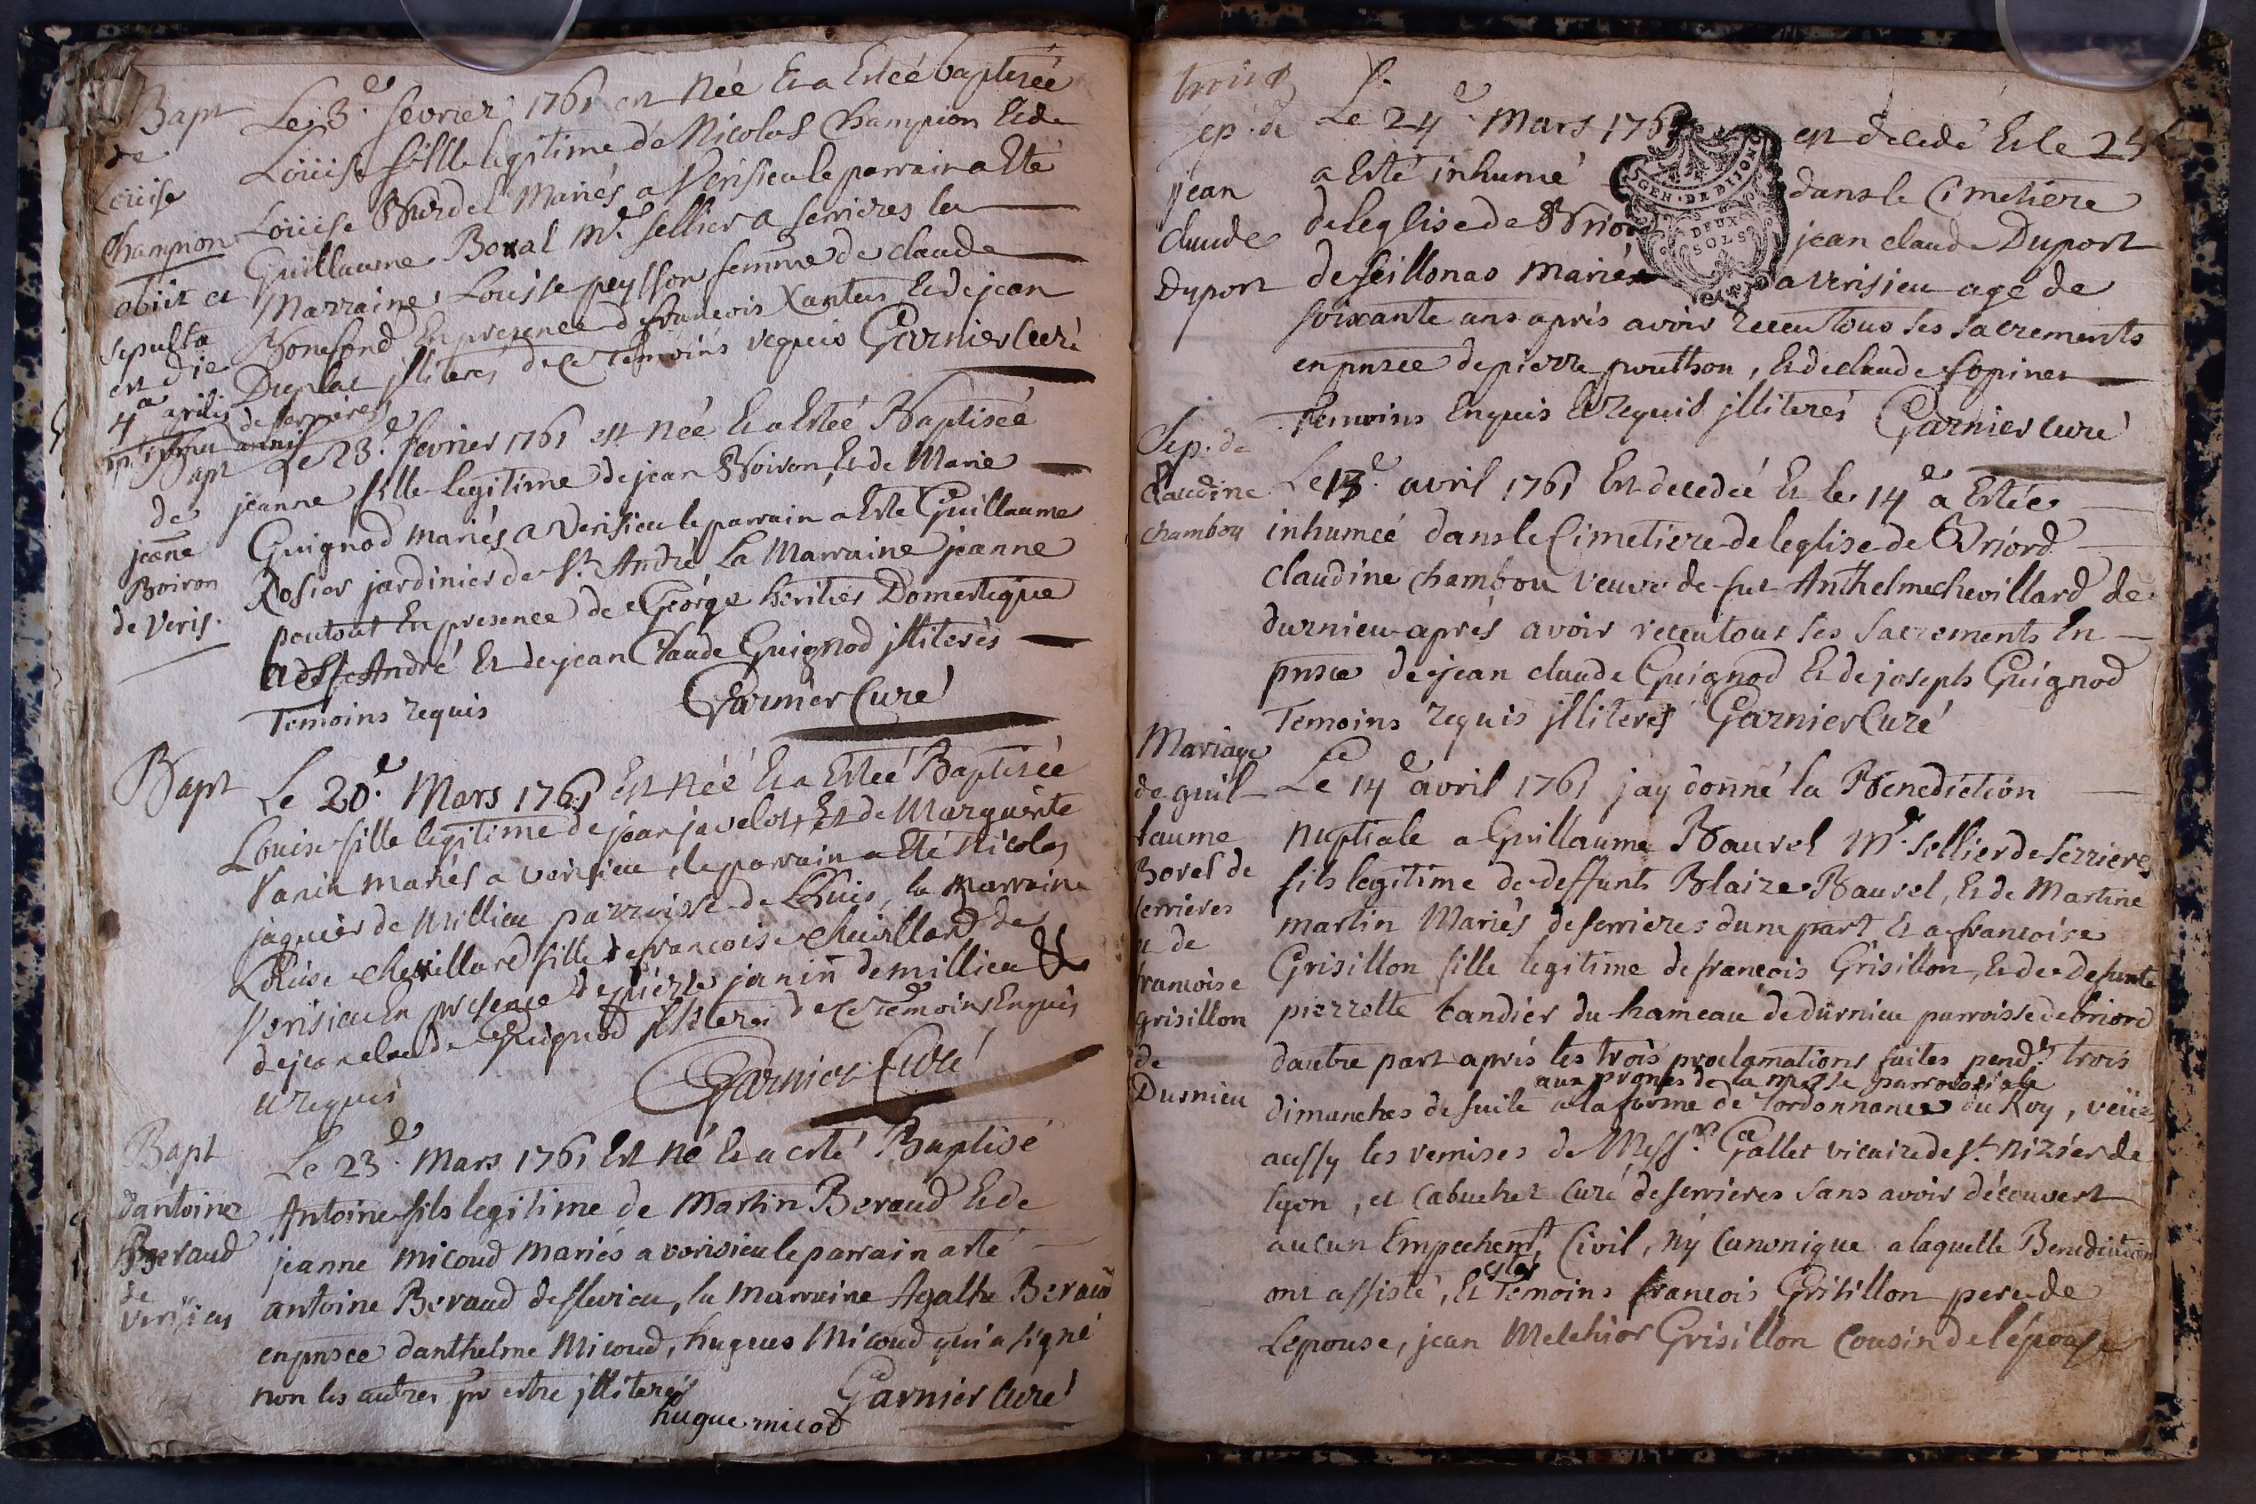 Bapt
de
Loüise
Champion
obiit et
sepulta
est die
4a aprilis
Le 3.e fevrier 1761 est Née Et a Esteé baptiseé
Loüise fille legitime de Nicolas Champion Et de
Loüise Burdel Mariés a Verisieu le parrain a Eté
Guillaume Boral M.e sellier a serrieres la
Marraine, Louise peysson femme de claude
Bonefond En presence de françois Xantus Et de jean
Duplat jlliterés de ce temoins requis Garnier Curé
de serrieres
Bapt
de
jeane
Boiron
de Veris.
Le 23.e fevrier 1761 est Née Et a Esteé Baptiseé
jeanne fille legitime de jean Boiron, Et de Marie
Guignod mariés a Verisieu le parrain a Eté Guillaume
Rosier jardinier de St. André La Marraine jeanne
poutout En presence de George heritier Domestique
a St. André Et de jean Claude Guignod jlliterés
Temoins requis Garnier Curé
Bapt
Le 20.e Mars 1761 Est Neé Et a Esteé Baptiseé
Louise fille legitime de jean javelot, Et de Marguerite
Vanin mariés a verisieu, le parrain a Eté Nicolas
jaquier de Millieu parroisse de Lhuis, la Marraine
Loüise chevillard fille de francoise chevillard de
Verisieu En presence de pierre janin de millieu Et
de jean claude Guignod jlliterés de ce Temoins Enquis
et requis Garnier Curé
Bapt
d'antoine
Beraud
de
Verisieu
Le 23.e Mars 1761 Est né Et a esté Baptisé
Antoine fils legitime de Martin Beraud Et de
jeanne micoud mariés a verisieu le parrain a eté
antoine Beraud de flevieu, la marraine Agathe Beraud
en pnsce d'anthelme Micoud, hugues Micoud qui a signé
non les autres pr estre jlliterés Garnier Curé
hugue micod
trois
Sep. de
jean
claude
Duport
Le 24.e Mars 1761 est decedé Et le 25e
a Esté inhumé dans le Cimetiere
GEN. DE DIJON
DEUX
SOLS
de leglise de Briord jean claude Duport
de seillonas mariés a verisieu agé de
soixante ans aprés avoir receu tous ses sacrements
en pnsce de pierre prouthon, Et de claude Copinet
Temoins Enquis Et requis jlliterés Garnier Curé
Sep. de
Claudine
chambou
Le 13.e avril 1761 Est decedeé Et le 14.e a Esteé
inhumeé dans le Cimetiere de leglise de Briord
claudine chambou veuve de fut Anthelme chevillard de
durnieu aprés avoir receu tous ses Sacrements En
pnsce de jean claude Guignod Et de joseph Guignod
Temoins requis jlliterés Garnier Curé
Mariage
de guil-
laume
Borel de
serrieres
et de
francoise
grisillon
de
Durnieu
Le 14.e avril 1761 jay donné la Benediction
nuptiale a Guillaume Baurel M.e sellier de serrieres
fils legitime de deffunts Blaize Baurel, Et de Martine
martin Mariés de serrieres dune part Et a francoise
Grisillon fille legitime de francois Grisillon, Et de defunte
pierrette tandier du hameau de dürnieu parroisse de briord
dautre part aprés les trois proclamations faites pendt. trois
aux prones de la messe parroissiale
dimanches de suite a la forme de lordonnance du Roy, veües
aussy les remises de Messrs. Gallet vicaire de St. nizier de
lyon, et Cabuchet Curé de serrieres sans avoir découvert
aucun Empechemt. Civil, Ny Canonique a laquelle Benediction
ont assisté, Et Temoins francois Grisillon pere de
Lepouse, jean Melchior Grisillon Cousin de lépouse